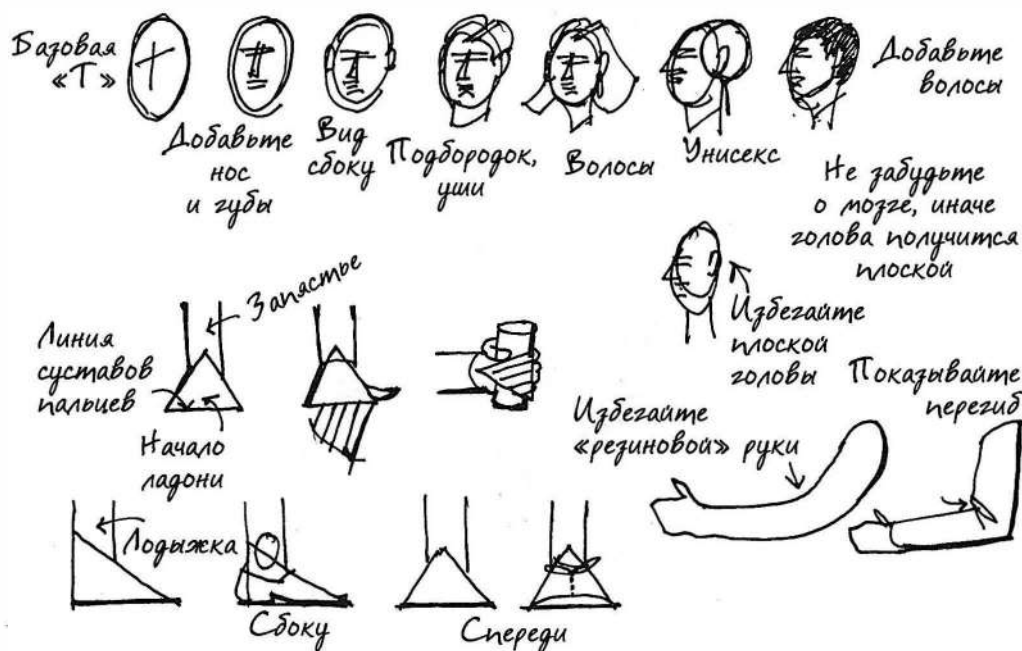 Базовая
«Т»
Добавьте
нос
и губы
Вид
сбоку
Подбородок,
уши
Волосы
Унисекс
Добавьте
волосы
Не забудьте
о мозге, иначе
голова получится
плоской
Избегайте
плоской
головы
Запястье
Линия
суставов
пальцев
Начало
ладони
Избегайте
«резиновой» руки
Показывайте
перегиб
Лодыжка
Сбоку
Спереди